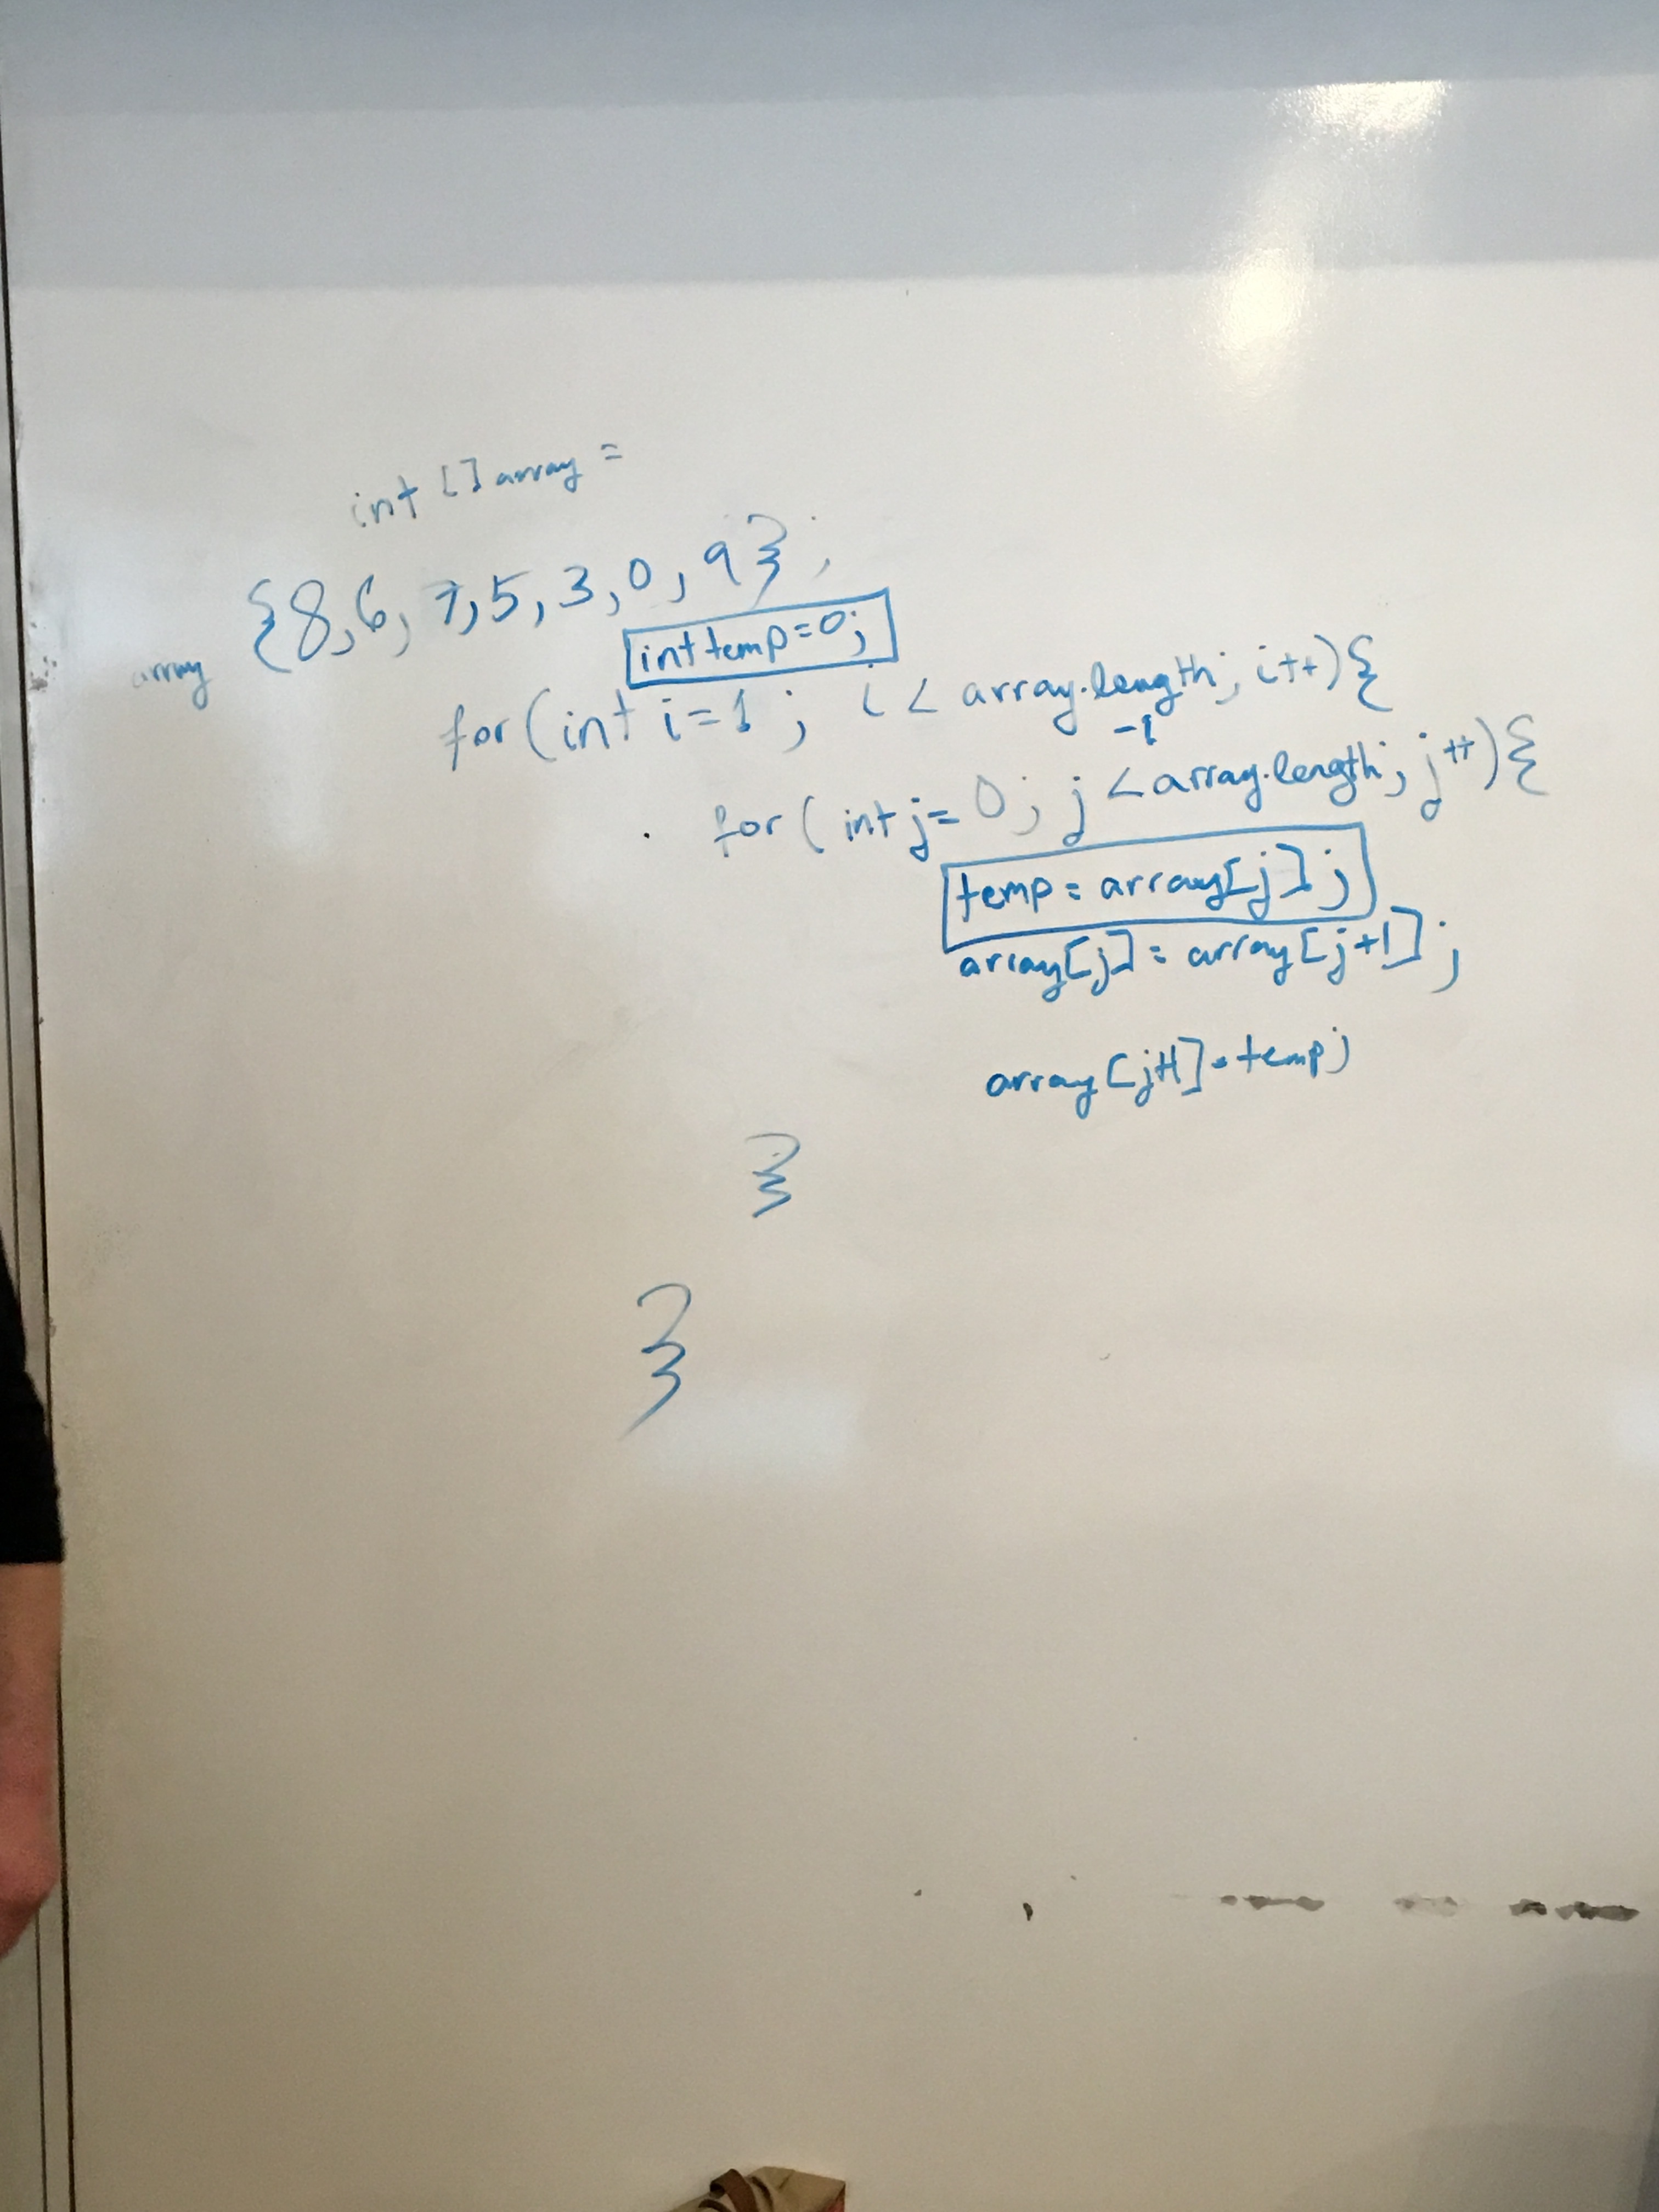 int [] array =
{8,6,7,5,3,0,9};
array
int temp=0;
for(int i=1; i < array.length; i++){
-1
for(int j=0; j <array.length; j++){
temp = array[j];
array[j] = array[j+1];
array[j+1]=temp;
}
}